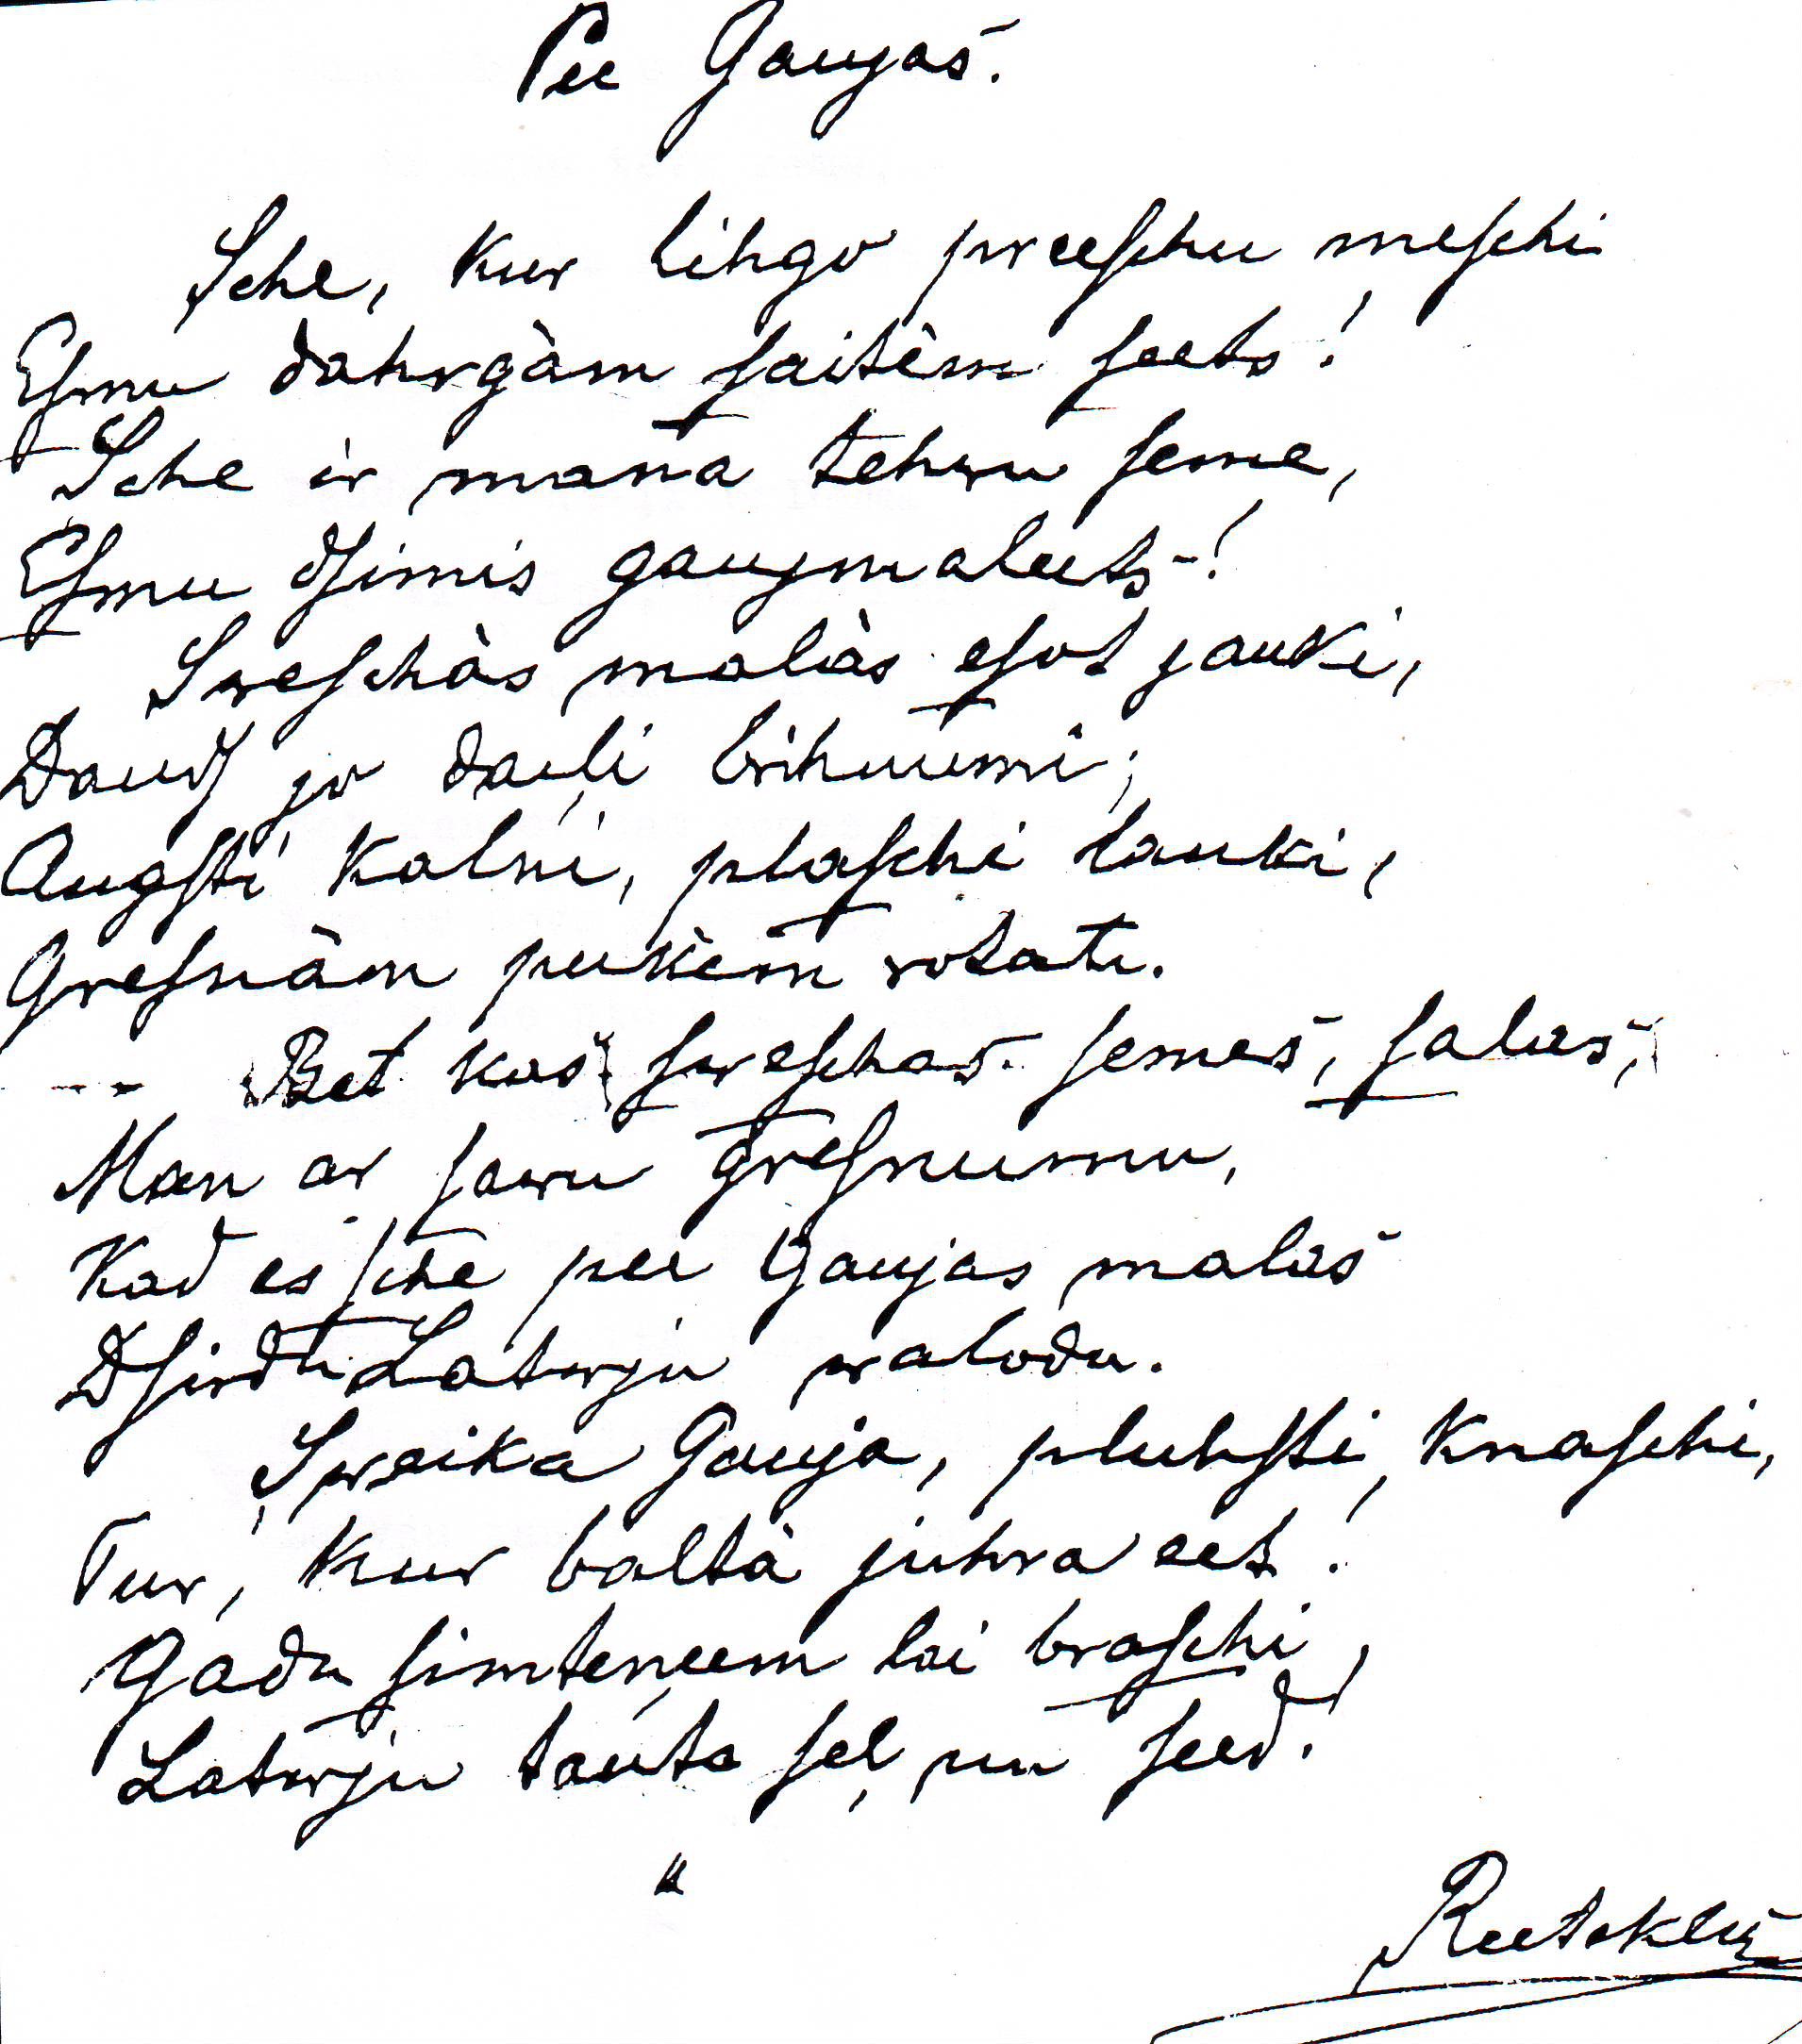 Pee Gaujas.
Sche, kur lihgo preeſchu meſchi
Eſmu dahrgàm ſaitèm ſeets!
Sche ir mana tehwu ſeme,
Eſmu dſimis gaujmaleets-!
Sweſchàs malàs eſot jauki,
Daudſ jo daiļi brihnumi;
Augſti kalni, plaſchi lauki,
Greſnàm puķèm rotati.
-- Bet kas ſweſchas ſemes, ſalas,
Man ar ſawu greſnumu,
Kad es ſche pee Gaujas malas
Dſirdu Latwju walodu.
Sweika Gauja, pluhſti knaſchi,
Tur, kur baltà juhra eet!
Gadu ſimteņeem lai braſchi,
Latwju tauta ſeļ un ſeed!
Reeteklis